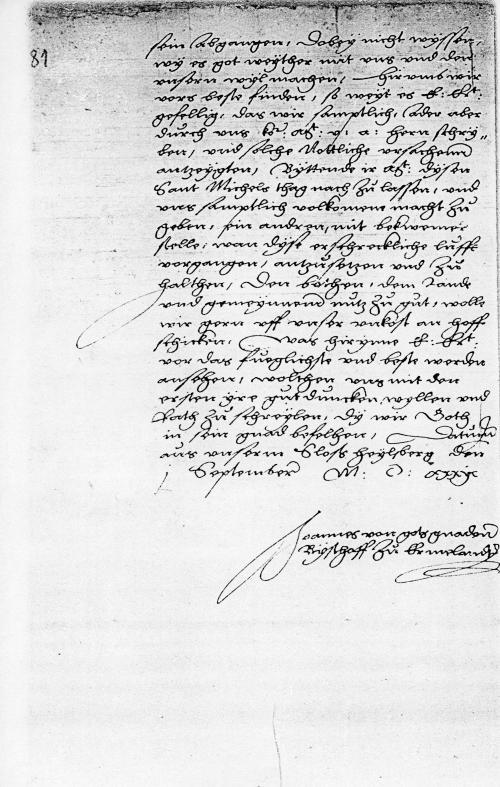 81
sein abgangen, Dabey nicht wyssen,
wy es got weyther mit uns und den
unsern wyl machen, Hirumb wir
vors beste finden, so weyt es E: Hrt:
gefellig, das wir samptlich, ader aber
durch uns ko: Mt: u: a: hern schry„
ben, und solche Notliche ursachenn
antzeygten, Byttende ir Mt: dysen
Sant Michels thag nach zu lassen, und
uns samptlich volkomene macht zu
geben, ein andren, mit bekwemer
stelle, wan dyse erschreckliche lufft
vorgangen, antzusetzen und zu
halthen, Den bothen, dem Lande
und gemeynnem nutz zu gut, wolle
wir gern uff unser unkost an hoff
schicken, Was hirynne E: Hrt:
vor das fueglichste und beste werden
ansehen, wolthen uns mit den
ersten yre gutduncken, wyllen und
Rath zu schreyben, Dy wir Goth
in sein gnad befelhen, Datum
aus unserm Sloss Heylsberg den
j Septembers M: D: xxxix
Joannes von gots gnaden
Bysschoff zu Ermelandt